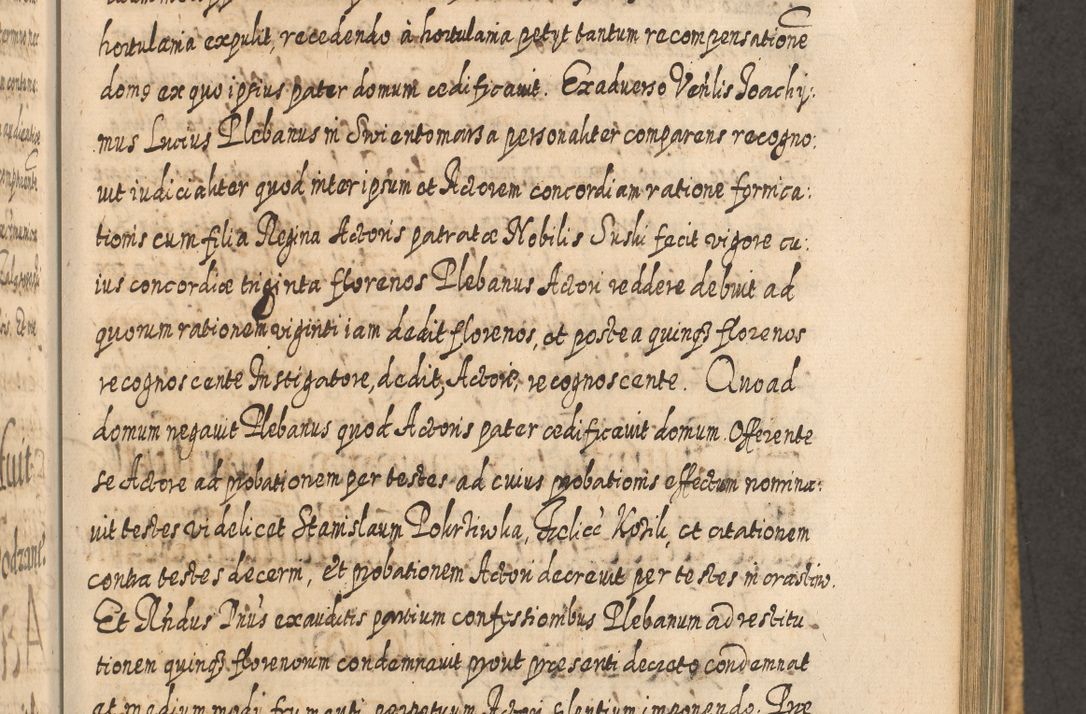 hortulania expulit, recedendo à hortulania petyt tantum recompensatione
domus ex quo ipsius pater domum aedificavit. Exadverso Venlis Joachy:
mus Lucius Plebanus in Swientomarza personaliter comparens recogno:
vit iudicialiter quod inter ipsum et Actorem concordiam ratione fornica:
tionis cum filia Regina Actoris patratae Nobilis Suski facit vigore cu:
ius concordiae triginta florenos Plebanus Actori reddere debuit ad
quorum rationem viginti iam dedit florenos, et postea quinqз florenos
recognoscente Instigatore, dedit, Actore, recognoscente. Quoad
domum negavit Plebanus quod Actoris pater aedificavit domum. Offerente
se Actore ad probationem per testes ad cuius probationis effectum nomina:
vit testes videlicet Stanislaum Pokrziwka, Kozik, et citationem
contra testes decerni, et probationem Actori decrevit per testes in crastino.
Et Rndus Dnus exauditis partium confessionibus Plebanum ad restitu
tionem quinqз florenorum condemnavit prout praesenti decreto condemnat
et medium modij frumenti perpetuum Actori silentium imponendo. Prae